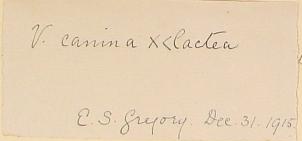 V. canina ×< lactea
E. S. Gregory. Dec. 31. 1915